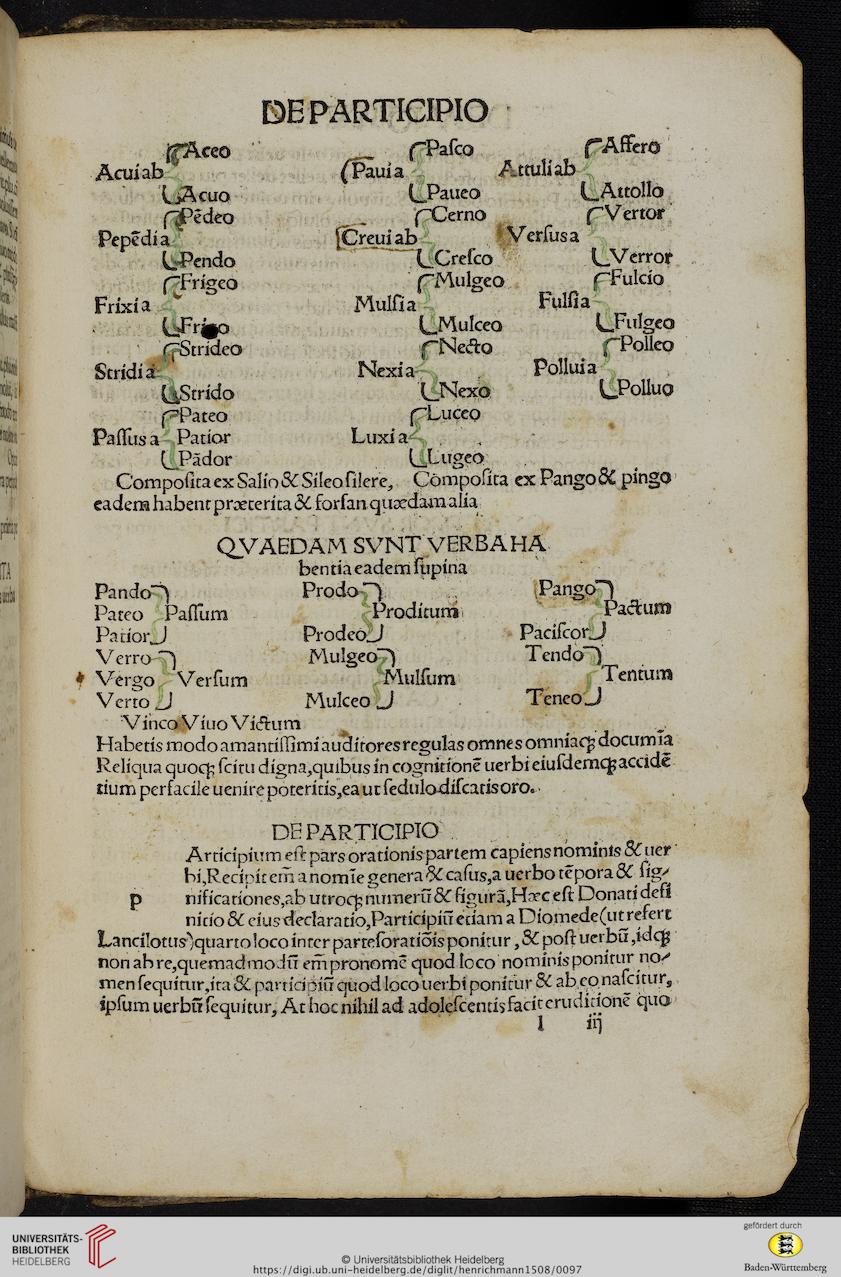 DE PARTICIPIO
Aceo
Acui ab
Acuo
Pēdeo
Pepēdi a
Pendo
Frigeo
Frixi a
Strideo
Stridi a
Strido
Pateo
Paſſus a Patior
Pādor
Paſco
Paui a
Paueo
Cerno
Creui ab
Creſco
Mulgeo
Mulſi a
Mulceo
Necto
Nexi a
Nexo
Luceo
Luxi a
Lugeo
Affero
Attuli ab
Attollo
Vertor
Verſus a
Verror
Fulcio
Fulſi a
Fulgeo
Polleo
Pollui a
Polluo
Compoſita ex Salio & Sileo ſilere, Compoſita ex Pango & pingo
eadem habent præterita & forſan quædam alia
QVAEDAM SVNT VERBA HA
bentia eadem ſupina
Pando
Pateo Paſſum
Patior
Verro
Vergo Verſum
Verto
Prodo
Proditum
Prodeo
Mulgeo
Mulſum
Mulceo
Pango
Pactum
Paciſcor
Tendo
Tentum
Teneo
Vinco Viuo Victum
Habetis modo amantiſſimi auditores regulas omnes omniaqꝫ documīa
Reliqua quoqꝫ ſcitu digna, quibus in cognitionē uerbi eiuſdemqꝫ accidē
tium perfacile uenire poteritis, ea ut ſedulo diſcatis oro.
DE PARTICIPIO
Articipium eſt pars orationis partem capiens nominis & uer
bi, Recipit em̄ a nomīe genera & caſus, a uerbo tēpora & ſig⸗
p nificationes, ab utroqꝫ numerū & figurā, Hæc eſt Donati defi
nitio & eius declaratio, Participiū etiam a Diomede (ut refert
Lancilotus) quarto loco inter parteſ oratiōis ponitur, & poſt uerbū, idqꝫ
non ab re, quemadmodū em̄ pronomē quod loco nominis ponitur no⸗
men ſequitur, ita & participiū quod loco uerbi ponitur & ab eo naſcitur,
ipſum uerbū ſequitur, At hoc nihil ad adoleſcentis facit eruditionē quo
l iij
UNIVERSITÄTS-
BIBLIOTHEK
HEIDELBERG
© Universitätsbibliothek Heidelberg
https://digi.ub.uni-heidelberg.de/diglit/henrichmann1508/0097
gefördert durch
Baden-Württemberg